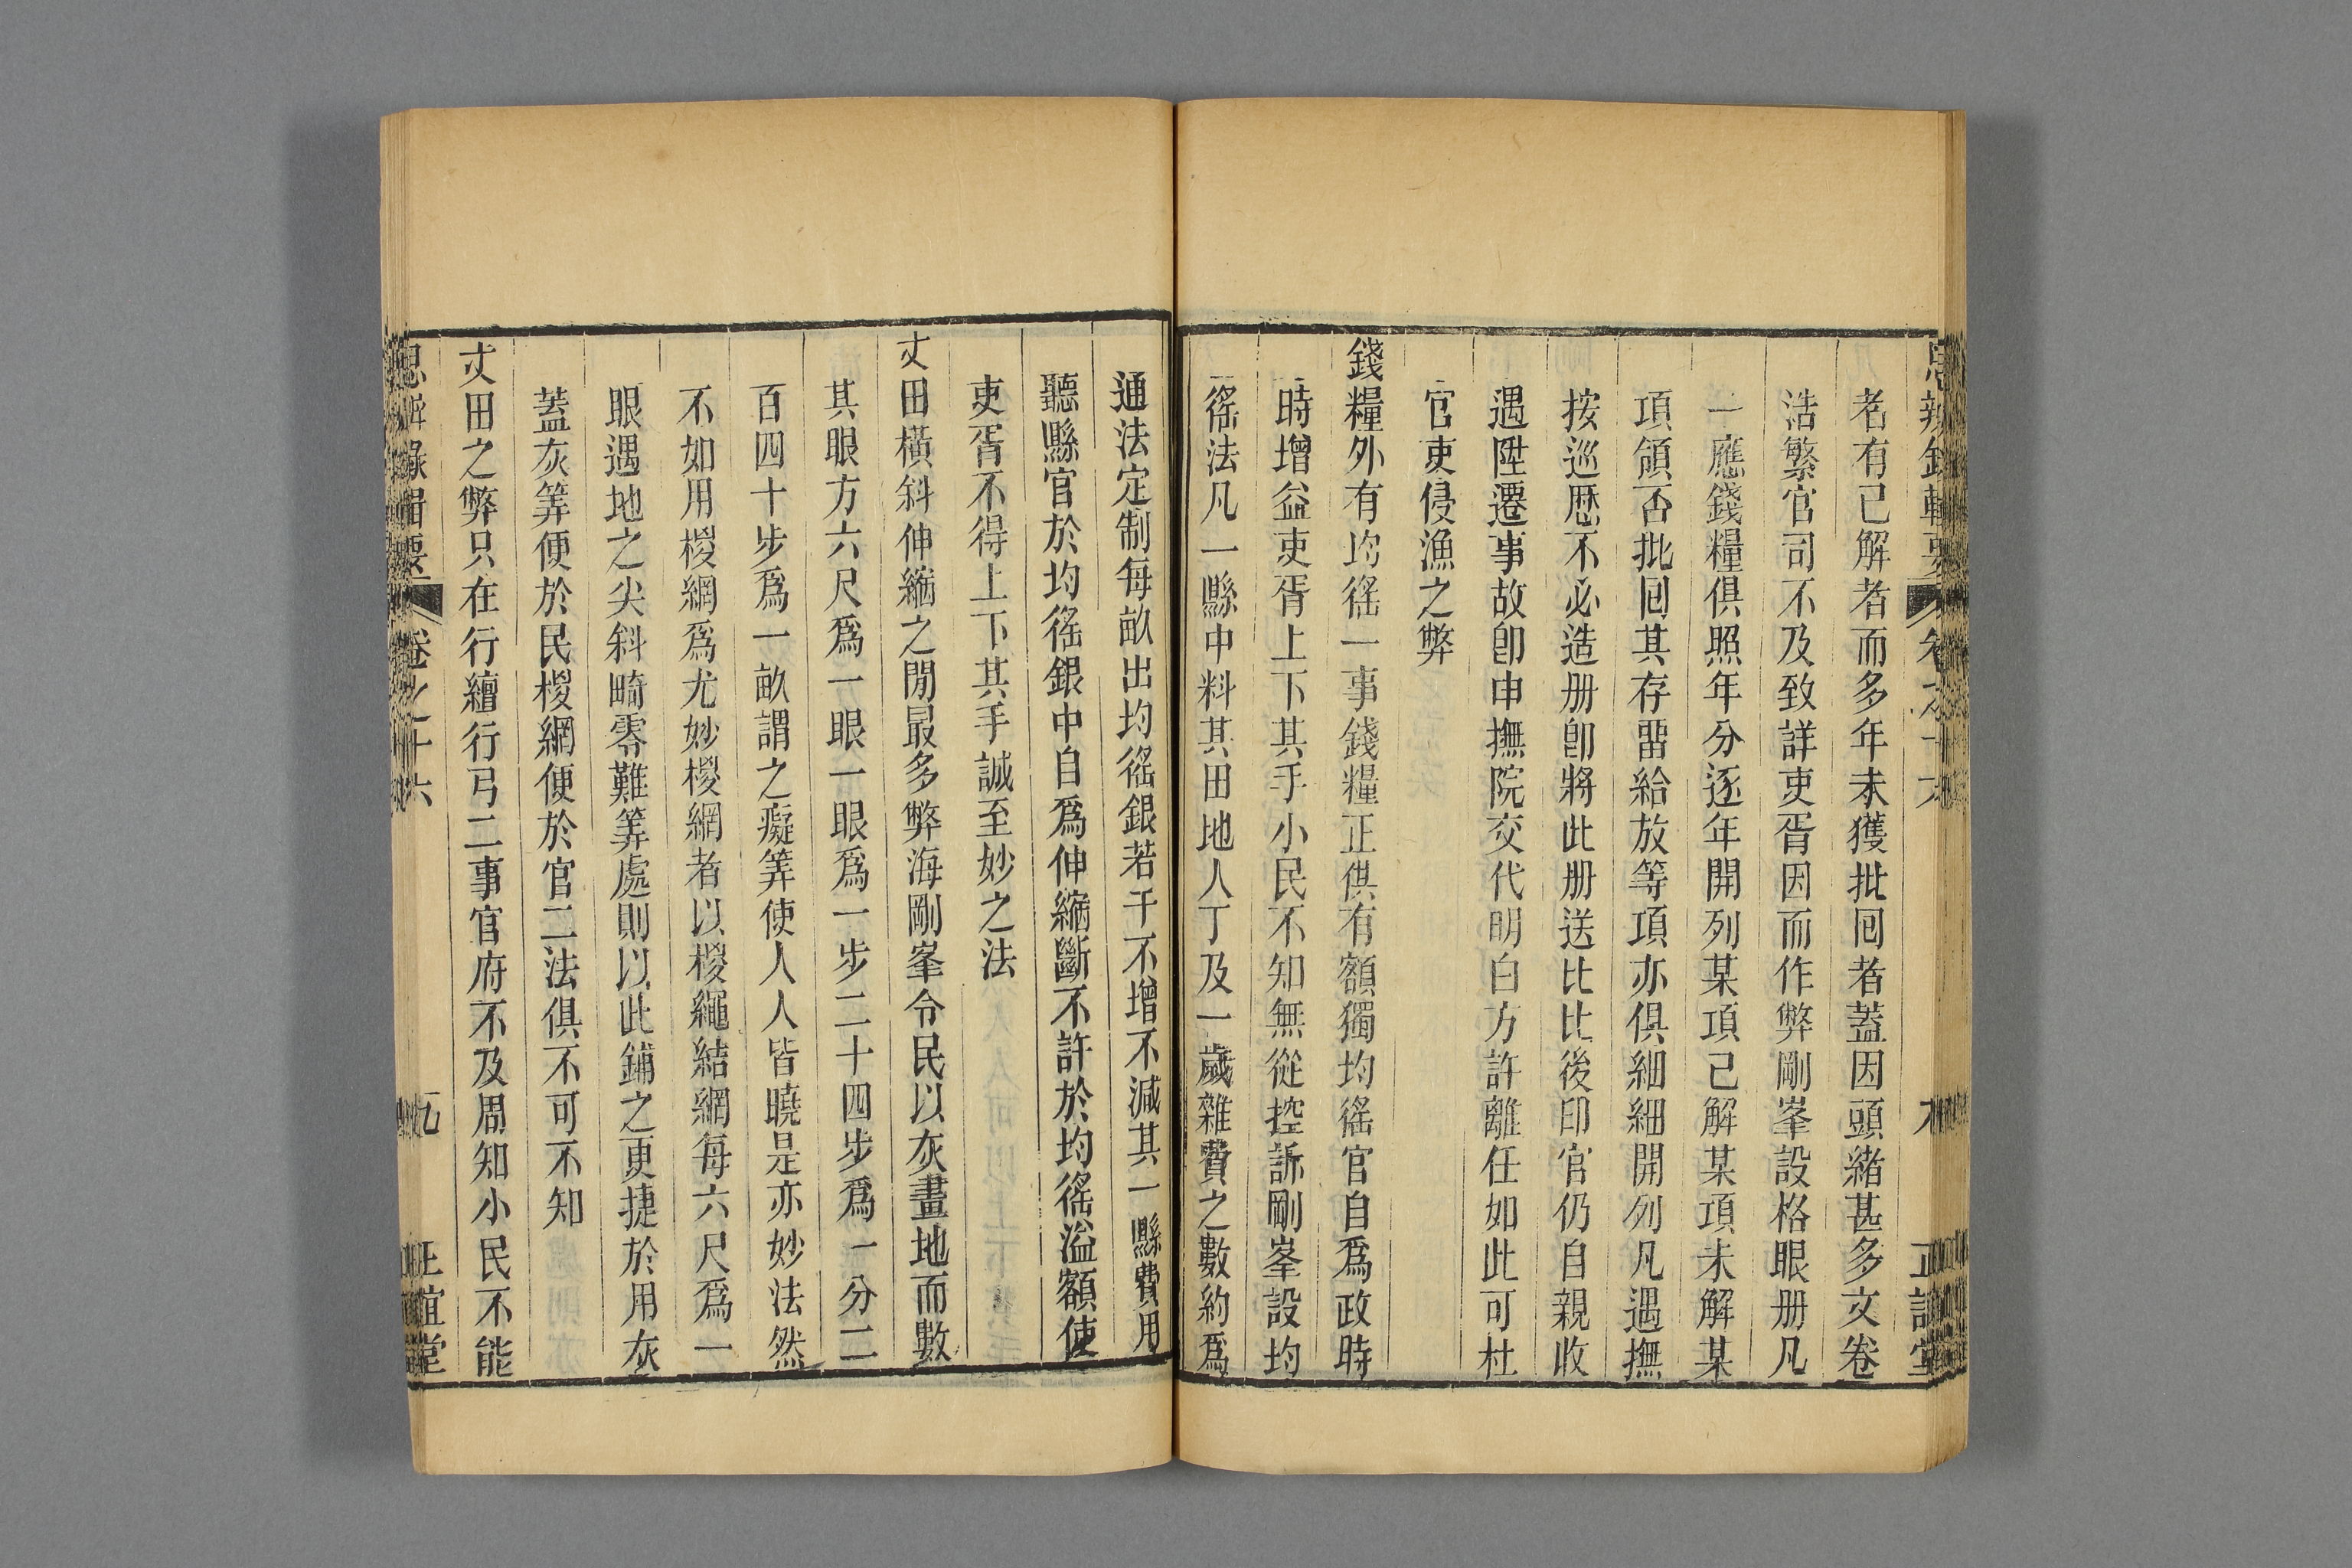 者有已解者而多年未獲批囘者蓋因頭緒甚多文卷
浩繁官司不及致詳吏胥因而作弊剛峯設格眼册凡
一應錢糧俱照年分逐年開列某項已解某項未解某
項領否批囘其存畱給放等項亦俱細細開列凡遇撫
按巡歴不必造册卽將此册送比比後印官仍自親收
遇陞遷事故卽申撫院交代明白方許離任如此可杜
官吏侵漁之弊
錢糧外有均徭一事錢糧正供有額獨均徭官自爲政時
時增益吏胥上下其手小民不知無從控訴剛峯設均
徭法凡一縣中料其田地人丁及一歲雜費之數約爲
通法定制每畝出均徭銀若干不增不減其一縣費用
聽縣官於均徭銀中自爲伸縮斷不許於均徭溢額使
吏胥不得上下其手誠至妙之法
丈田橫斜伸縮之閒最多弊海剛峯令民以灰畫地而數
其眼方六尺爲一眼一眼爲一步二十四步爲一分二
百四十步爲一畝謂之癡筭使人人皆曉是亦妙法然
不如用椶網爲尤妙椶網者以椶繩結網每六尺爲一
眼遇地之尖斜畸零難筭處則以此鋪之更捷於用灰
蓋灰筭便於民椶網便於官二法俱不可不知
丈田之弊只在行繵行弓二事官府不及周知小民不能
思辨錄輯要 卷之十六 九 正誼堂